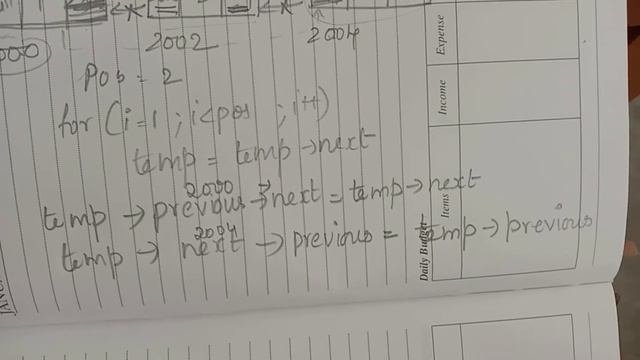 2002 2004
Pos = 2
for (i=1 ; i<pos ; i++)
temp = temp → next
2000
temp → previous → next = temp → next
2004
temp → next → previous = temp → previous
Expense
Income
Items
Daily Budget